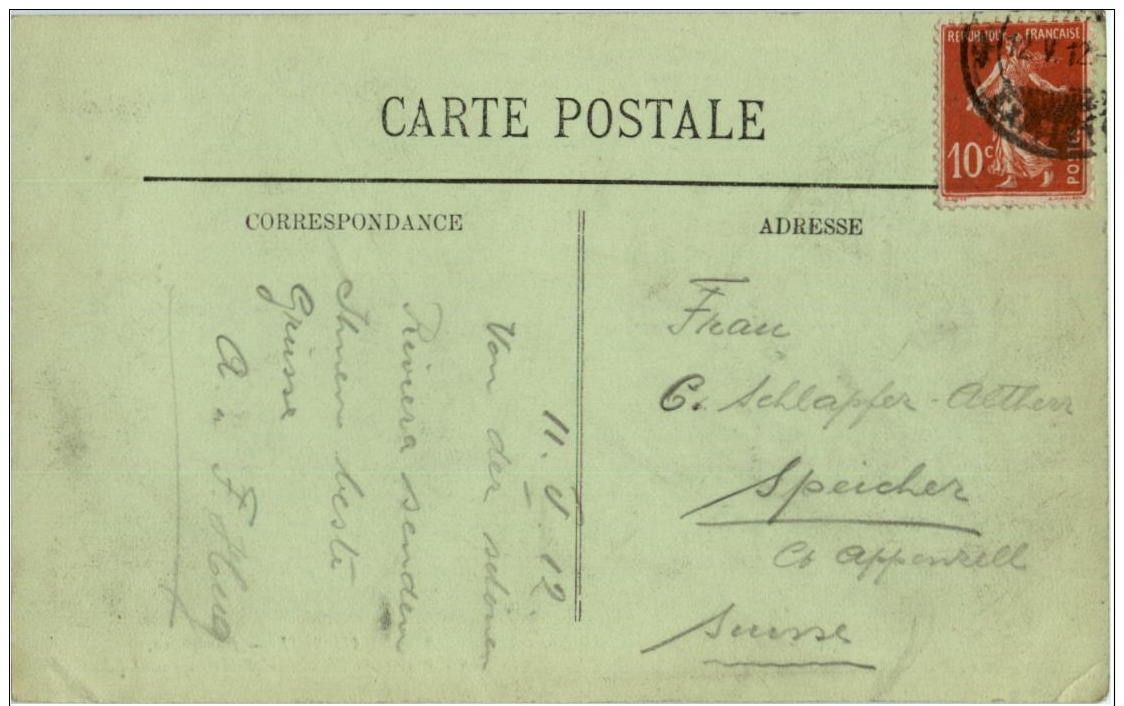 CARTE POSTALE
REPUBLIQUE FRANÇAISE
10c
POSTES
12 V. 12
CORRESPONDANCE
11. V. 12.
Von der schönen
Riviera senden
Ihnen beste
Grüsse
A. u. F. Hug
ADRESSE
Frau
C. Schläpfer-Altherr
Speicher
Ct Appenzell
Suisse